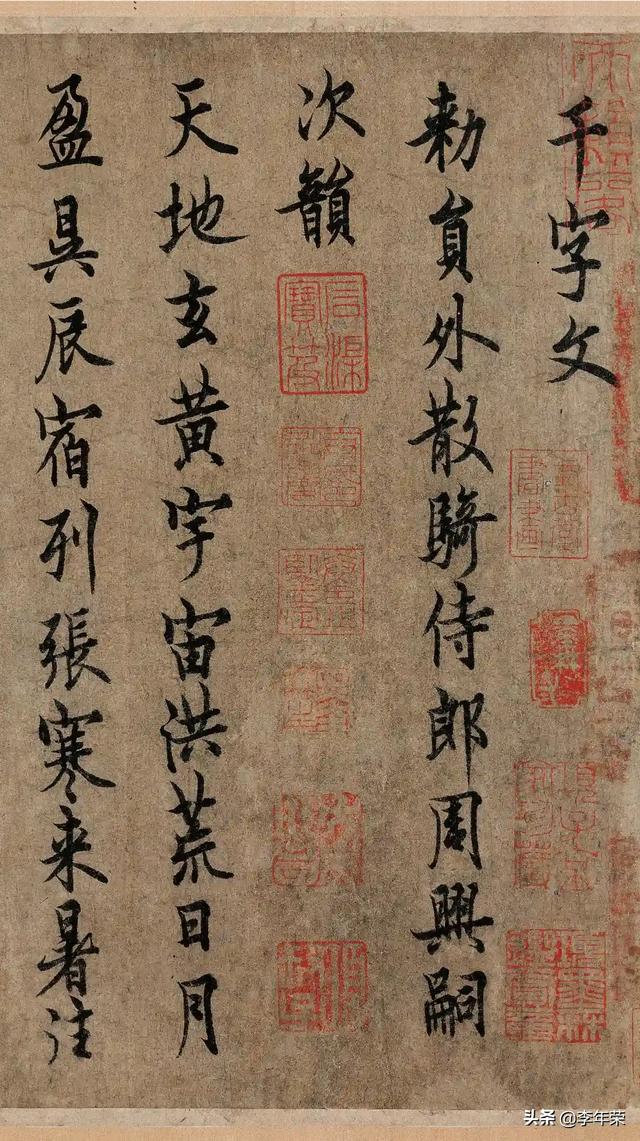 千字文
勑員外散騎侍郎周興嗣
次韻
天地玄黄宇宙洪荒日月
盈昃辰宿列張寒来暑往
头条 @李年荣